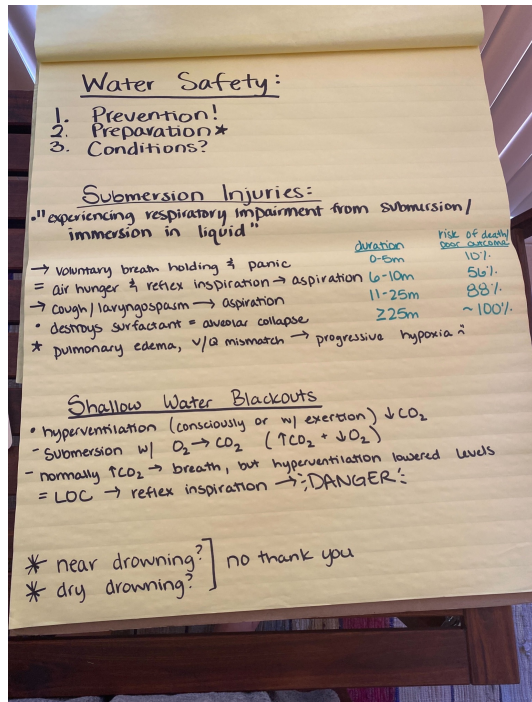 Water Safety:
1. Prevention!
2. Preparation*
3. Conditions?
Submersion Injuries:
•"experiencing respiratory impairment from submersion/
immersion in liquid"
→ voluntary breath holding & panic
= air hunger & reflex inspiration → aspiration
→ cough/laryngospasm → aspiration
• destroys surfactant = alveolar collapse
* pulmonary edema, V/Q mismatch → progressive hypoxia
duration risk of death/
poor outcome
0-5m 10%
6-10m 56%
11-25m 88%
≥25m ~100%
Shallow Water Blackouts
• hyperventilation (consciously or w/ exertion) ↓CO₂
- Submersion w/ O₂ → CO₂ (↑CO₂ + ↓O₂)
- normally ↑CO₂ → breath, but hyperventilation lowered levels
= LOC → reflex inspiration → DANGER
* near drowning? ] no thank you
* dry drowning?